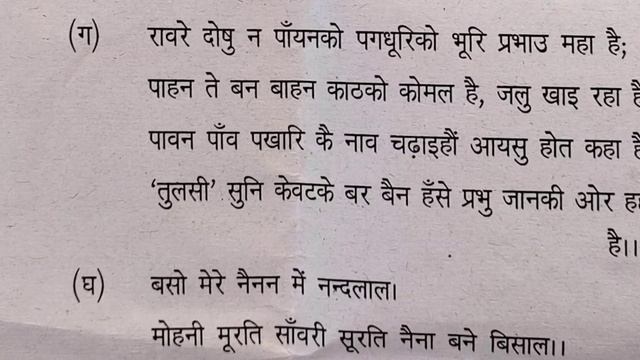 (ग) रावरे दोषु न पाँयनको पगधूरिको भूरि प्रभाउ महा है;
पाहन ते बन बाहन काठको कोमल है, जलु खाइ रहा है
पावन पाँव पखारि कै नाव चढ़ाइहौं आयसु होत कहा है
‘तुलसी’ सुनि केवटके बर बैन हँसे प्रभु जानकी ओर
है।।
(घ) बसो मेरे नैनन में नन्दलाल।
मोहनी मूरति साँवरी सूरति नैना बने बिसाल।।